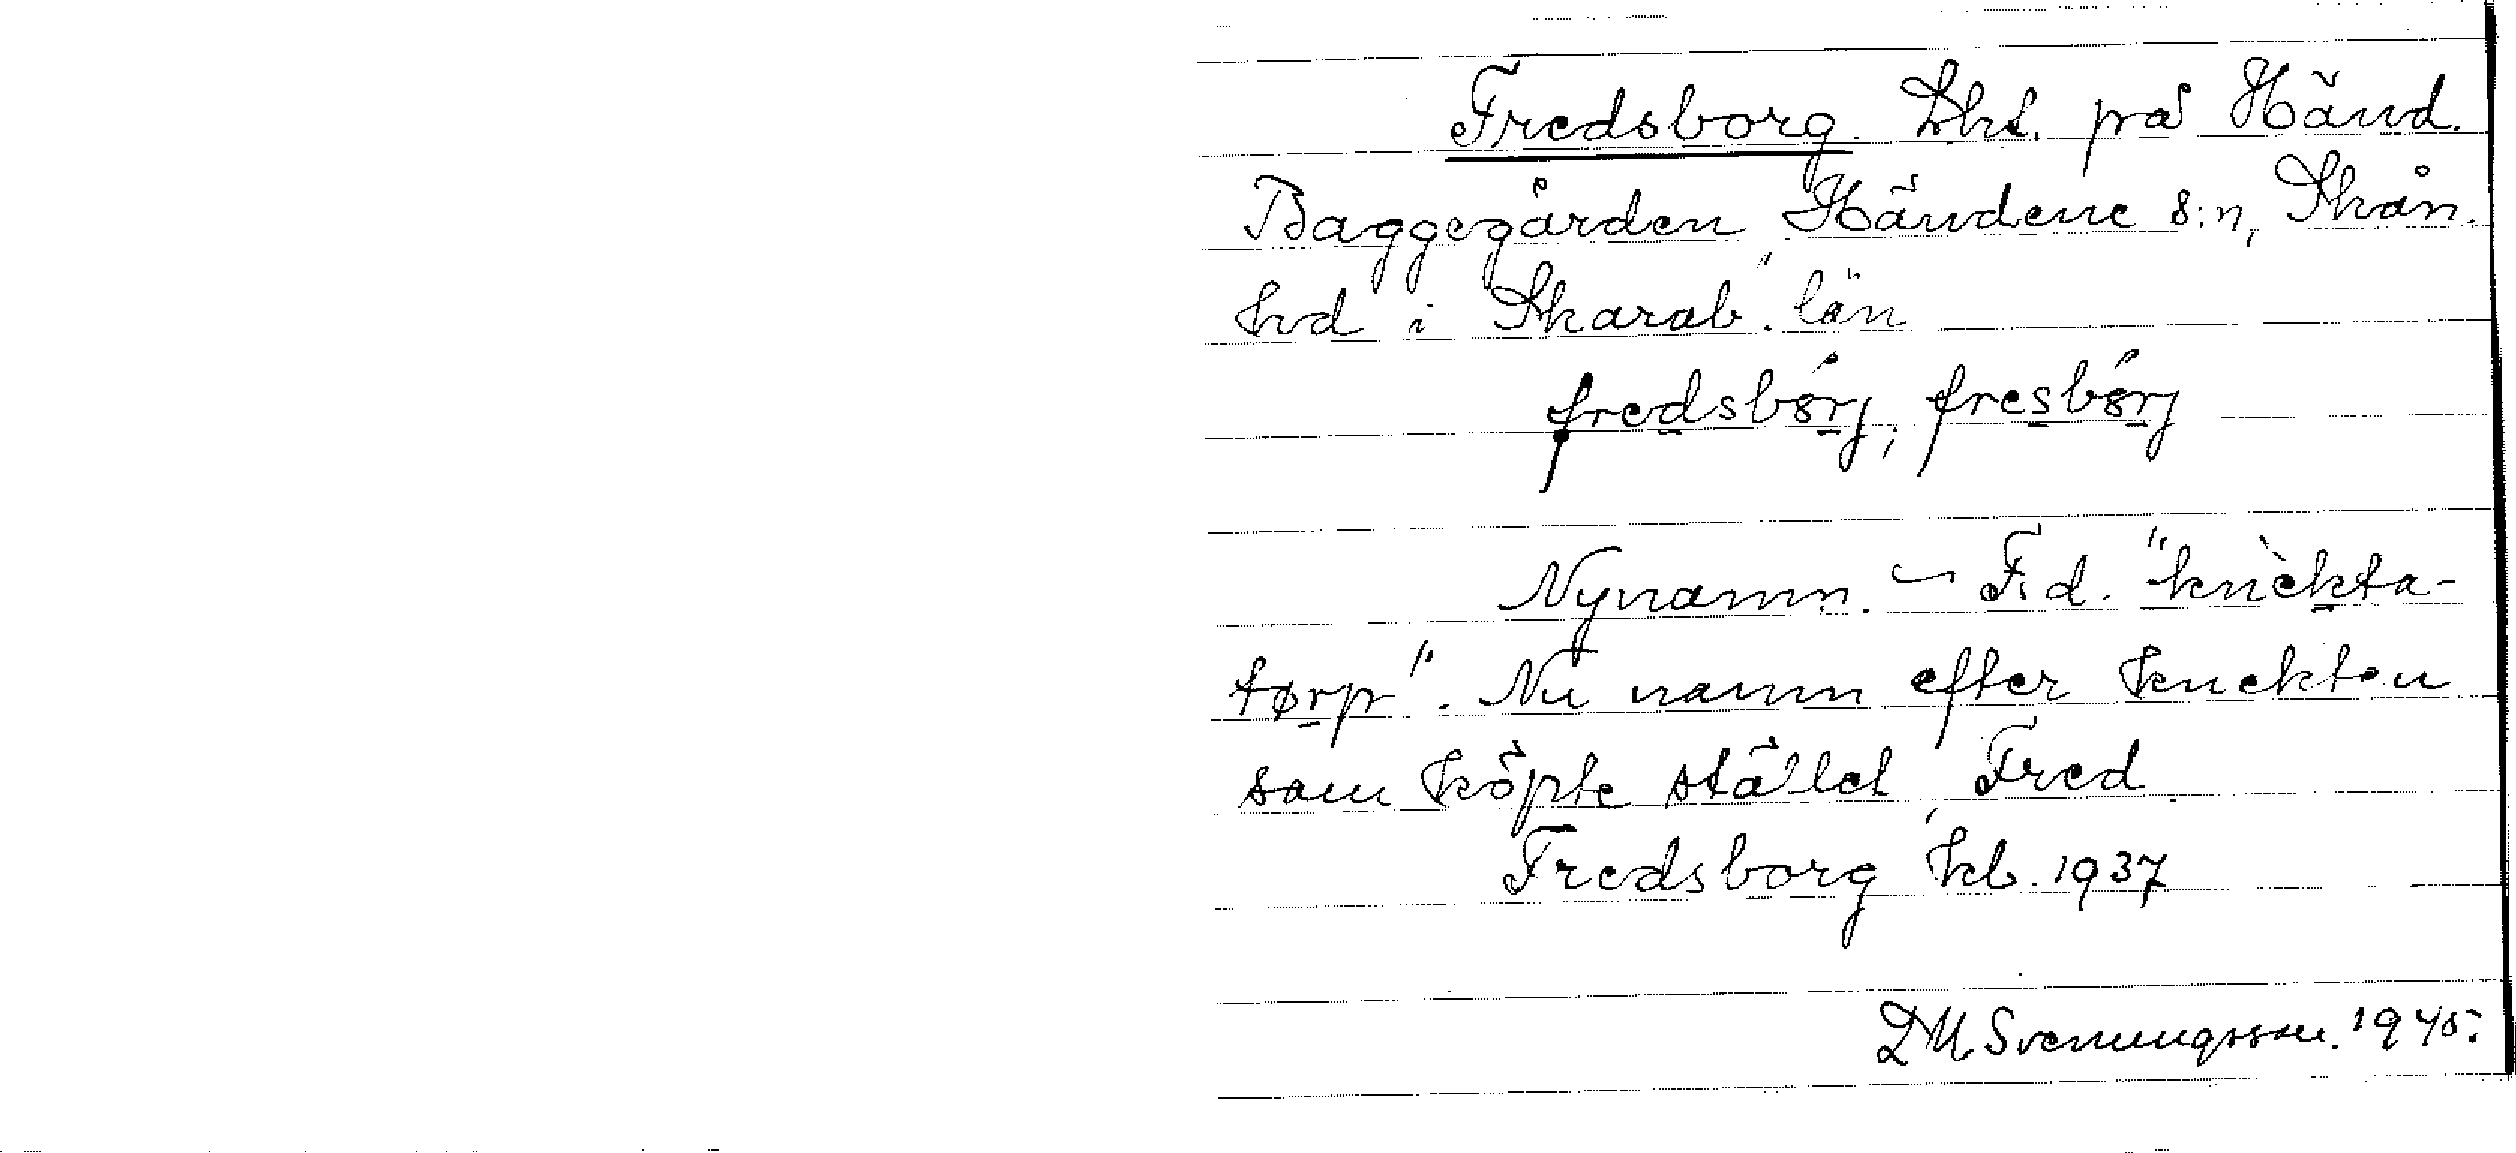 Fredsborg. Lht. på Händ.
Baggegården, Händene s:n, Skån.
hd i Skarab. län
fredsbǿrj, fresbǿrj
Nynamn. – F.d. "knèkta-
tørp". Nu namn efter knekten
som köpte stället, Fred.
Fredsborg kb. 1937
D M Svenungsson. 1945.